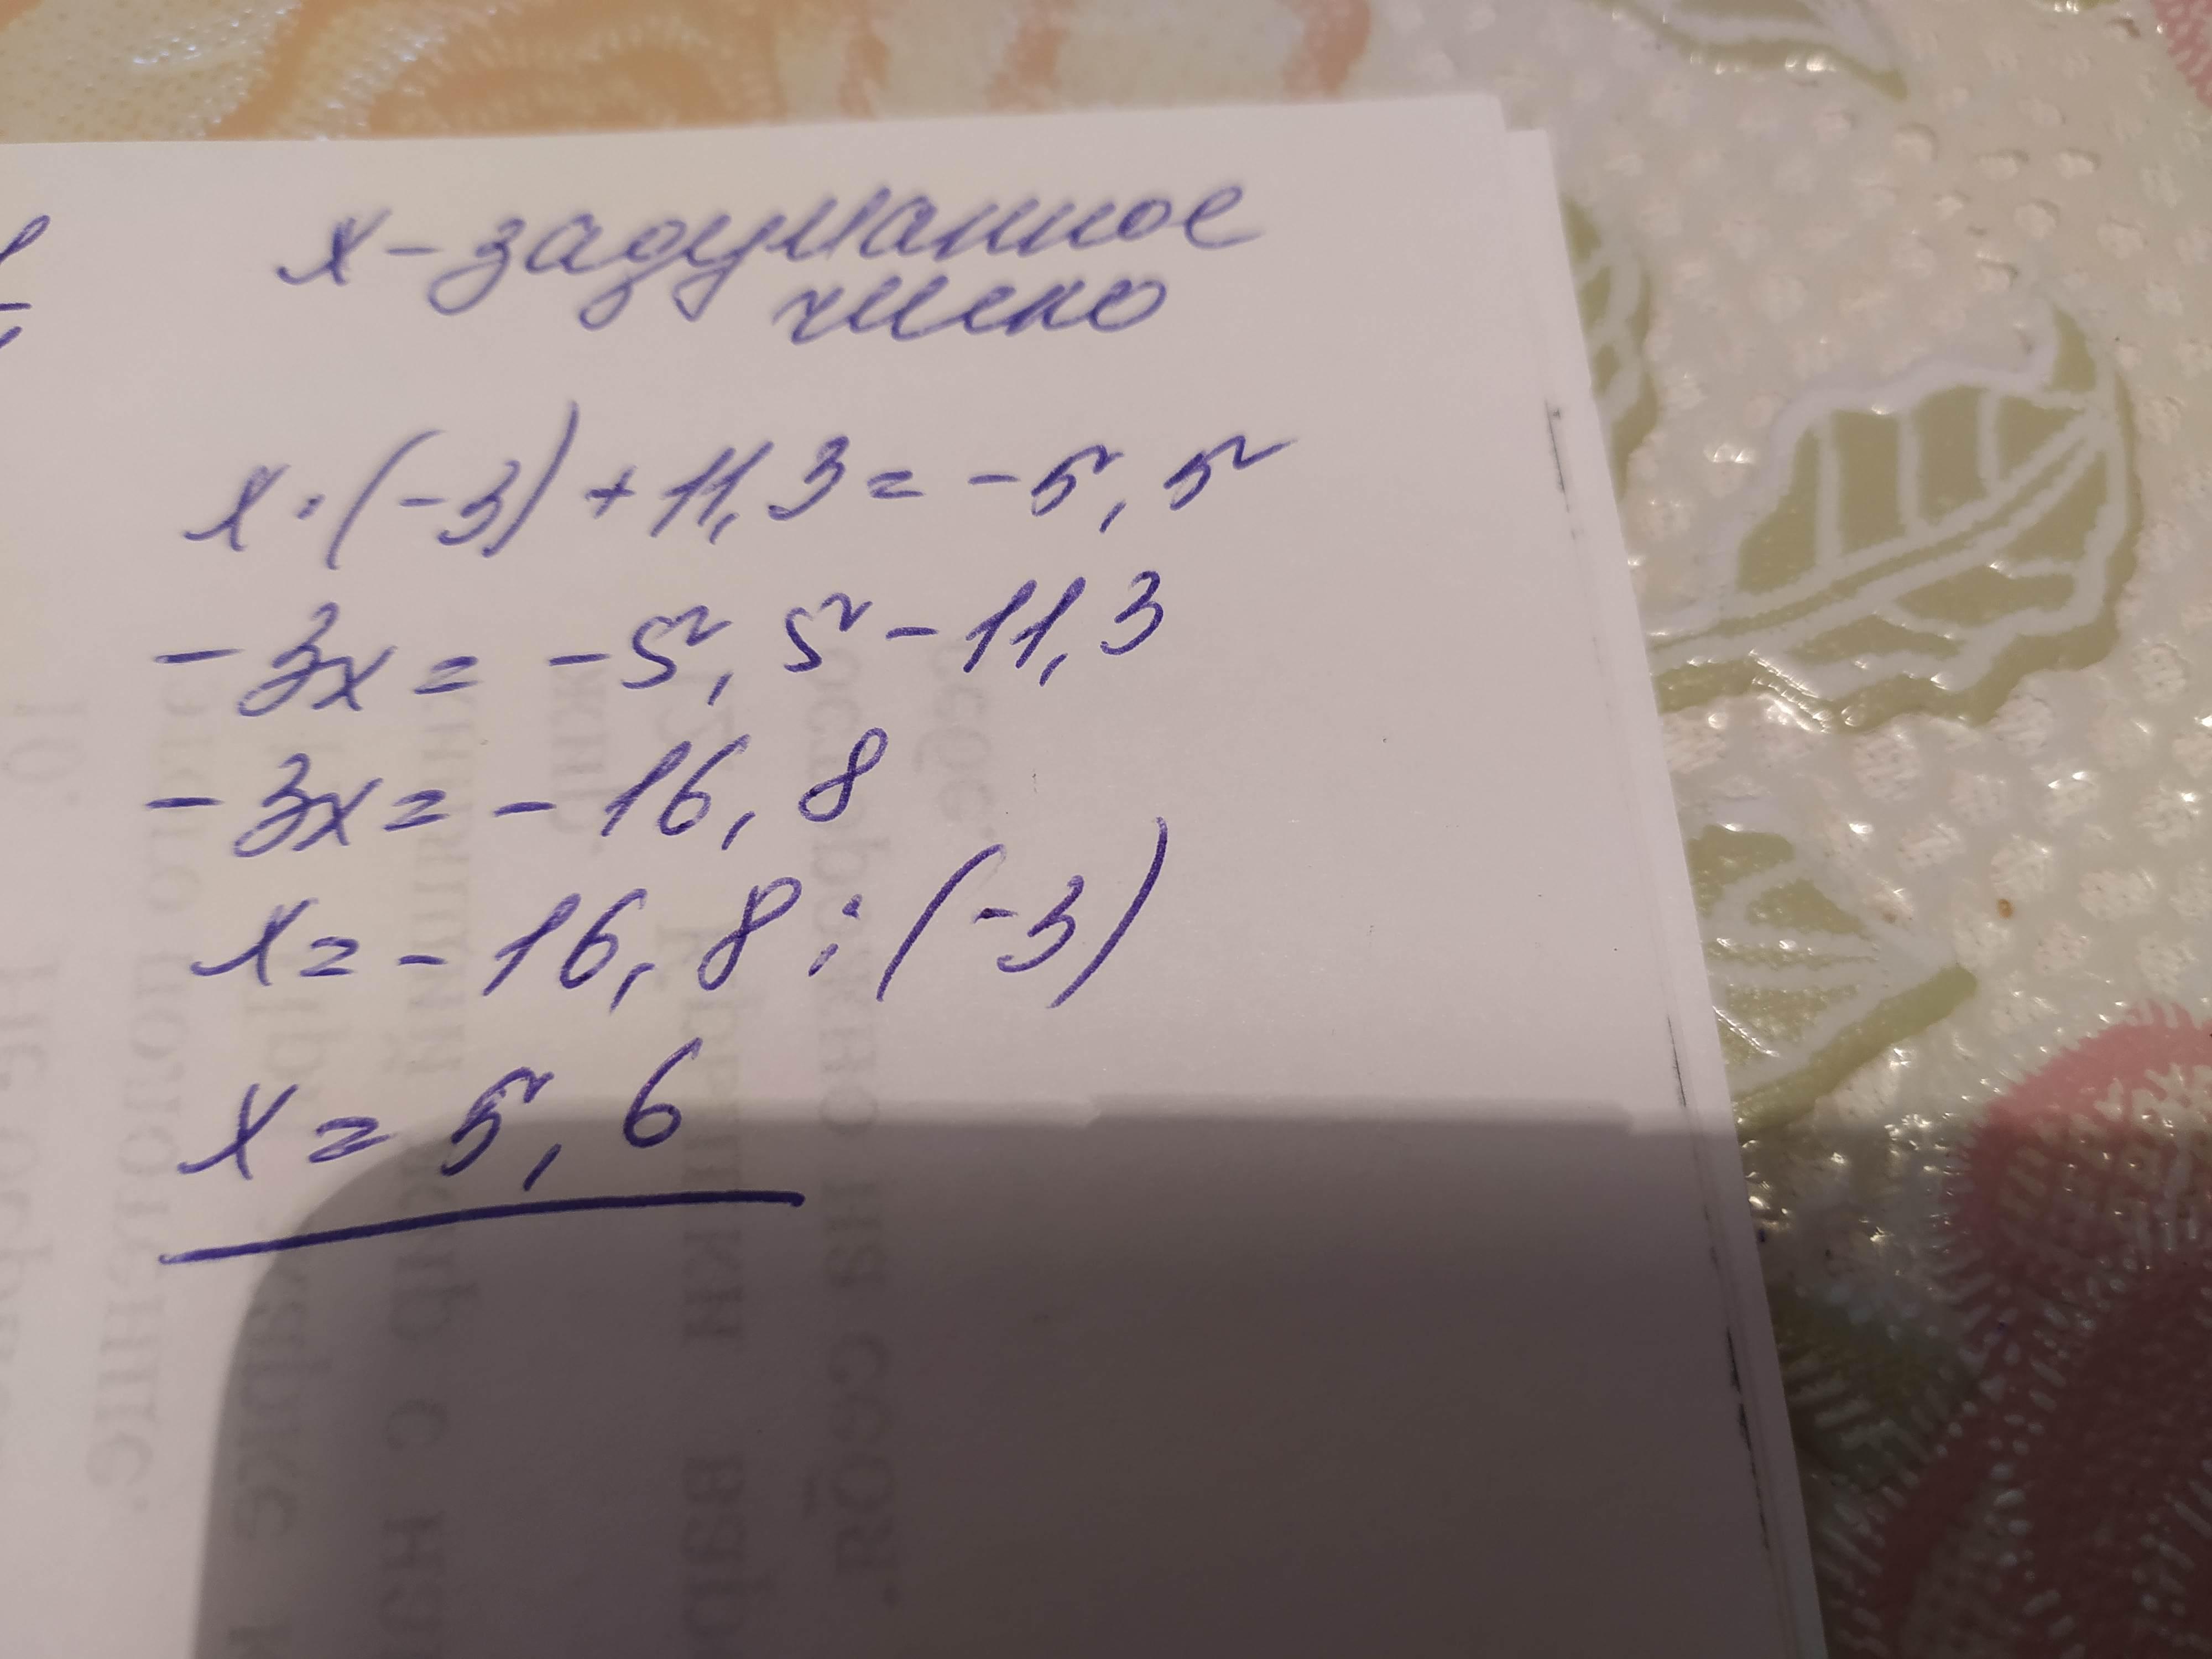 x - задуманное
число
x · (-3) + 11,3 = -5,5
- 3x = -5,5 - 11,3
- 3x = - 16,8
x = - 16,8 : (-3)
x = 5,6